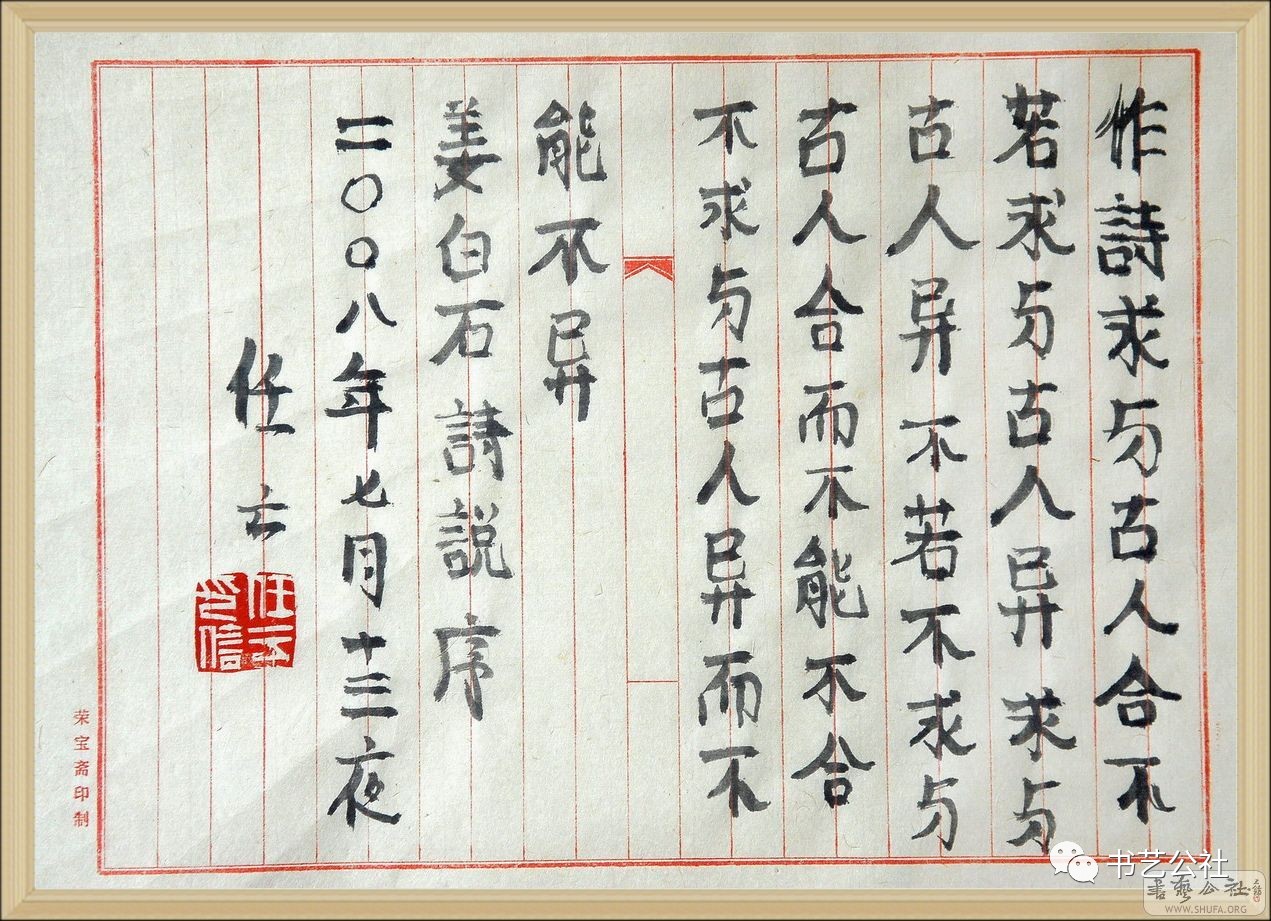 作詩求与古人合不
若求与古人异求与
古人异不若不求与
古人合而不能不合
不求与古人异而不
能不异
姜白石詩説序
二〇〇八年七月十三夜
任云
任云之信
荣宝斋印制
书艺公社
書藝公社
WWW.SHUFA.ORG